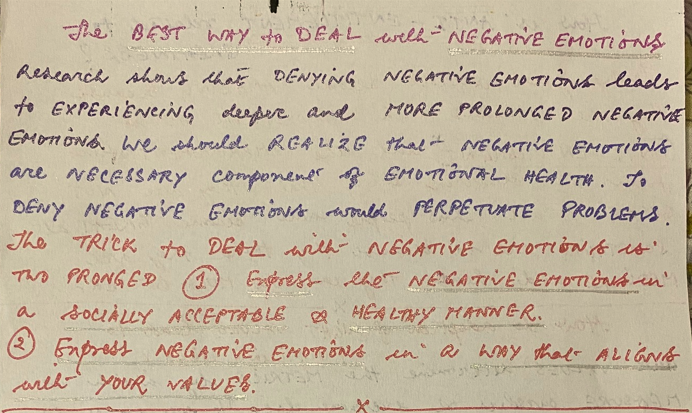 The BEST WAY to DEAL with NEGATIVE EMOTIONS
Research shows that DENYING NEGATIVE EMOTIONS leads
to EXPERIENCING deeper and MORE PROLONGED NEGATIVE
EMOTIONS. We should REALIZE that NEGATIVE EMOTIONS
are NECESSARY component of EMOTIONAL HEALTH. To
DENY NEGATIVE EMOTIONS would PERPETUATE PROBLEMS.
The TRICK to DEAL with NEGATIVE EMOTIONS is
TWO PRONGED ① Express the NEGATIVE EMOTIONS in
a SOCIALLY ACCEPTABLE & HEALTHY MANNER.
② Express NEGATIVE EMOTIONS in a WAY that ALIGNS
with YOUR VALUES.
X